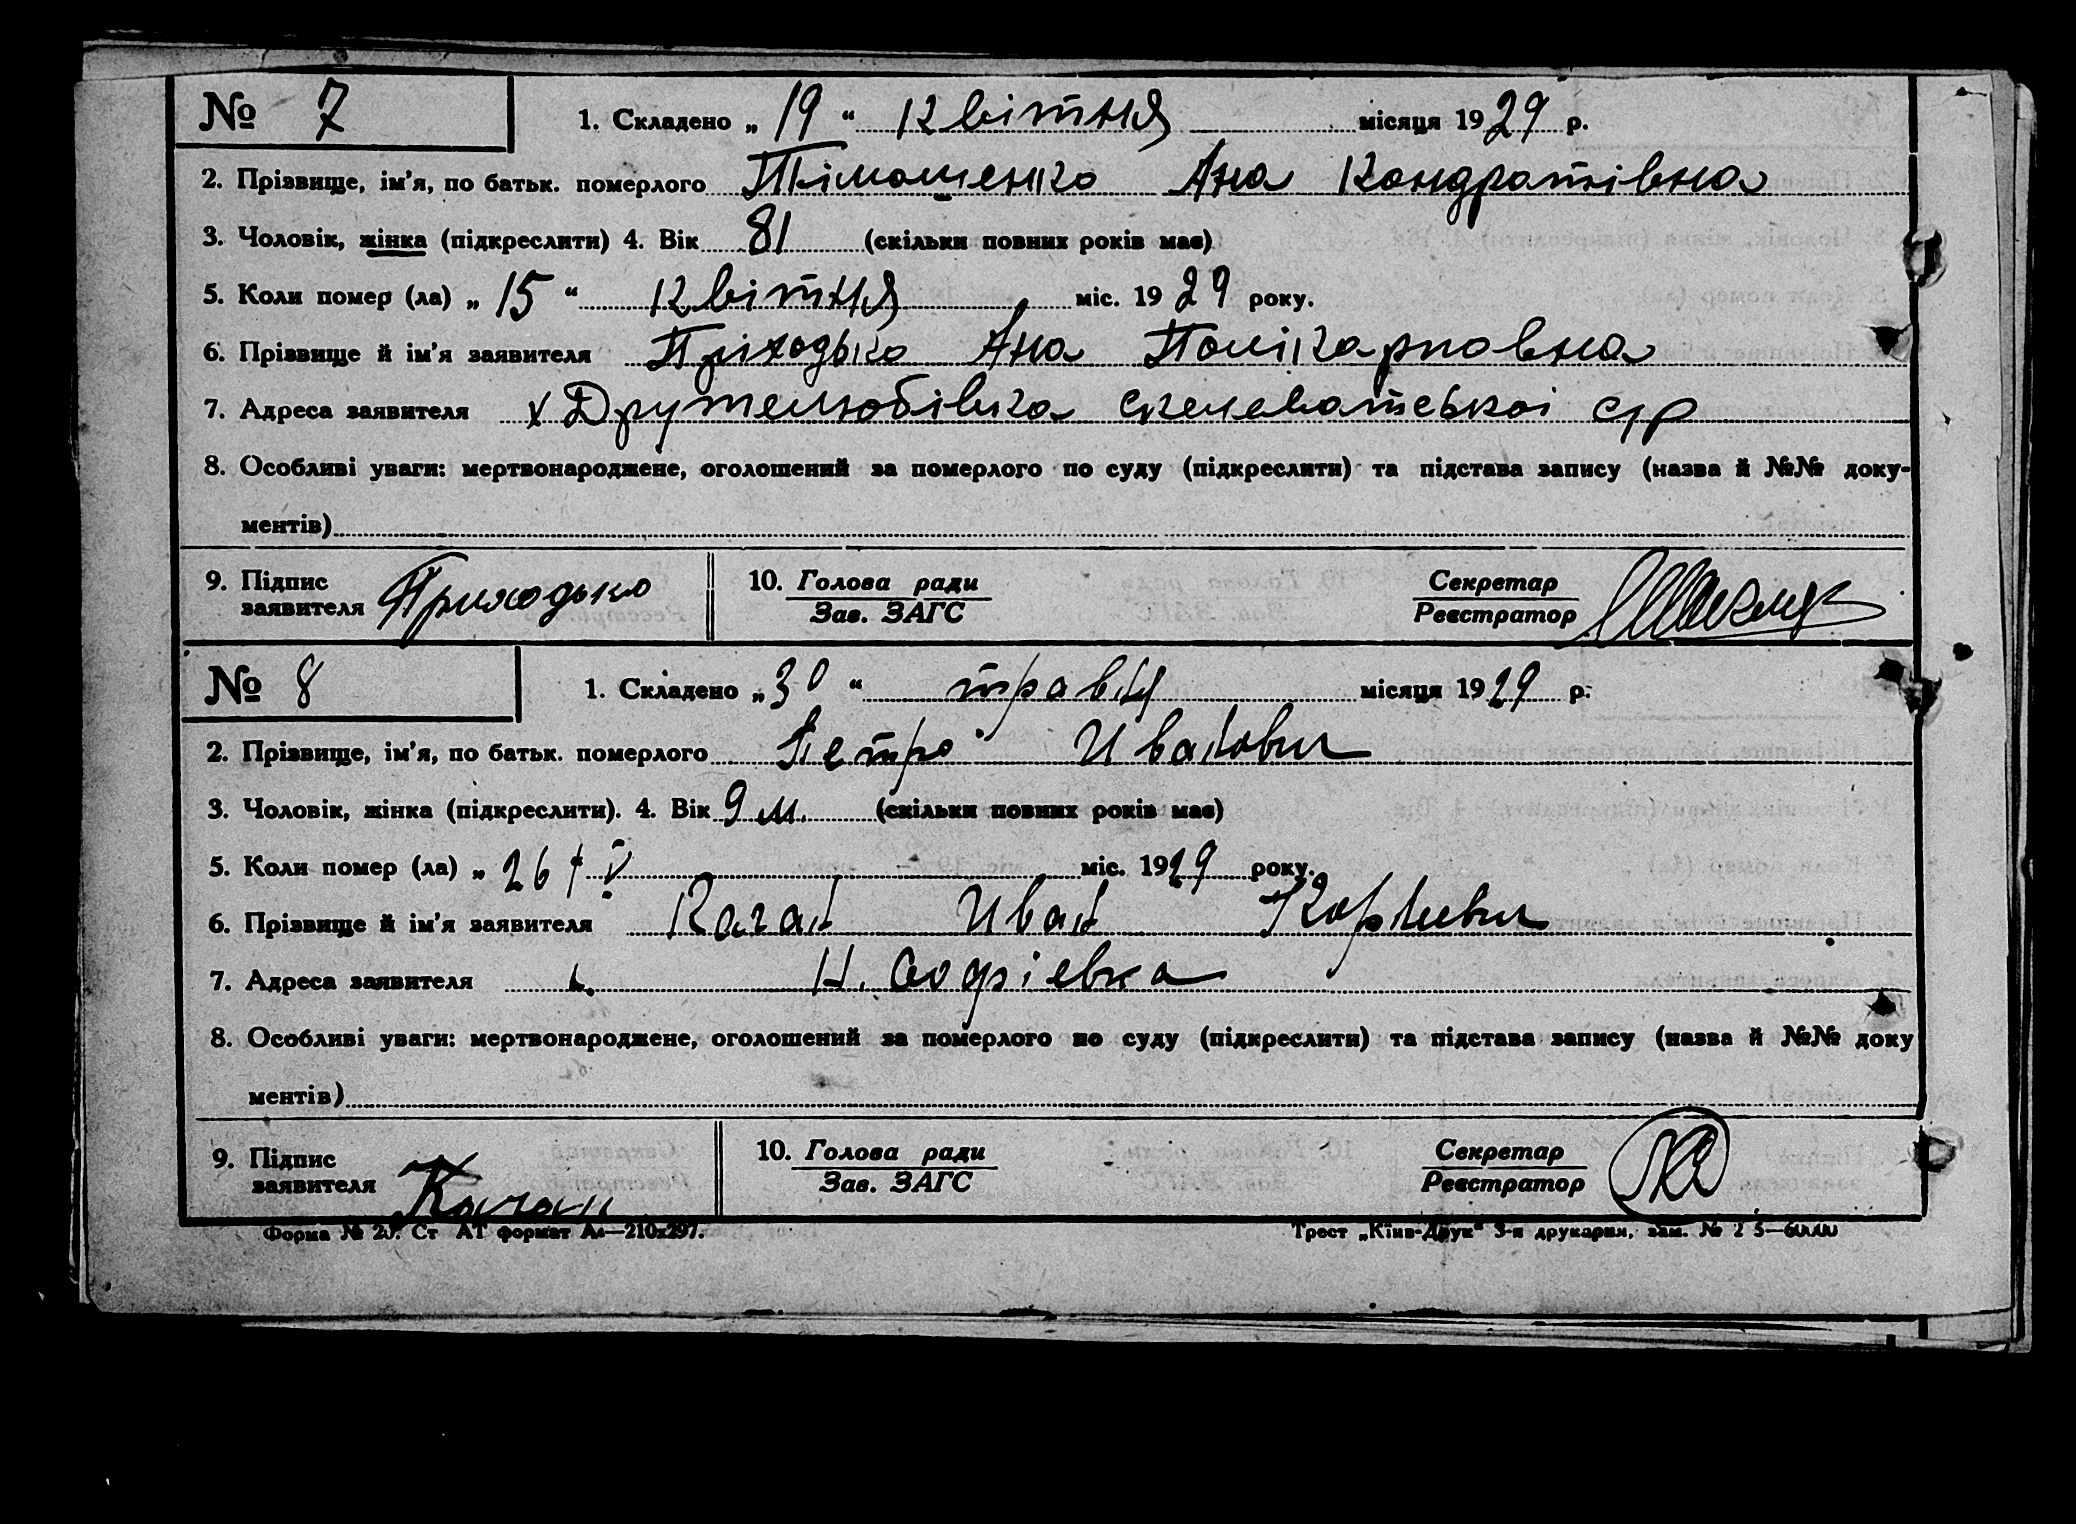 № 7
1. Складено „ 19 “ квітня місяця 1929 р.
2. Прізвище, ім’я, по батьк. померлого Тімошенко Ана Кондратівна
3. Чоловік, жінка (підкреслити) 4. Вік 81 (скільки повних років має)
5. Коли помер (ла) „ 15 “ квітня міс. 1929 року.
6. Прізвище й ім’я заявителя Пріходько Ана Полікарповна
7. Адреса заявителя х Дружелюбівка скелеватської с/р
8. Особливі уваги: мертвонароджене, оголошений за померлого по суду (підкреслити) та підстава запису (назва й №№ доку-
ментів)
9. Підпис заявителя Приходько
10. Голова ради
Зав. ЗАГС
Секретар
Реєстратор
№ 8
1. Складено „ 30 “ травня місяця 1929 р.
2. Прізвище, ім’я, по батьк. померлого Петро Иванович
3. Чоловік, жінка (підкреслити). 4. Вік 9 м. (скільки повних років має)
5. Коли помер (ла) „ 26 / V міс. 1929 року.
6. Прізвище й ім’я заявителя Качан Иван Корнієвич
7. Адреса заявителя Н. Софіевка
8. Особливі уваги: мертвонароджене, оголошений за померлого по суду (підкреслити) та підстава запису (назва й №№ доку
ментів)
9. Підпис заявителя Качан
10. Голова ради
Зав. ЗАГС
Секретар
Реєстратор
Форма № 20. Ст АТ формат А4—210х297.
Трест „Київ-Друк“ 3-я друкарня, зам. №